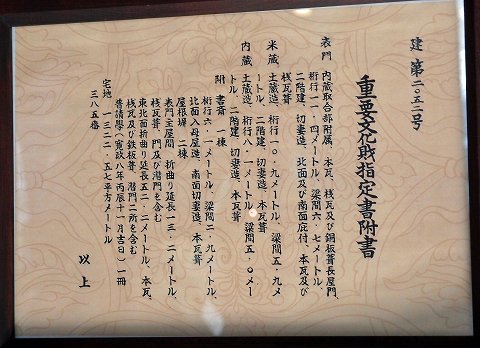 建 第二〇五二号
重要文化財指定書附書
表門 内蔵取合部附属、本瓦、桟瓦及び銅板葺長屋門、
桁行一一・四メートル、梁間六・七メートル、
二階建、切妻造、北面及び南面庇付、本瓦及び
桟瓦葺
米蔵 土蔵造、桁行一〇・九メートル、梁間五・九メ
ートル、二階建、切妻造、本瓦葺
内蔵 土蔵造、桁行八・一メートル、梁間五・〇メー
トル、二階建、切妻造、本瓦葺
附 書斎 一棟
桁行六・一メートル、梁間二・九メートル、
北面入母屋造、南面切妻造、本瓦葺
屋根塀 二棟
表門主屋間 折曲り延長一三・二メートル、
桟瓦葺、門及び潜門を含む
東北面折曲り延長五二・二メートル、本瓦、
桟瓦及び鉄板葺、潜門二所を含む
普請學(寛政八年丙辰十一月吉日)一冊
宅地 一三二二・五七平方メートル
三八五番
以上